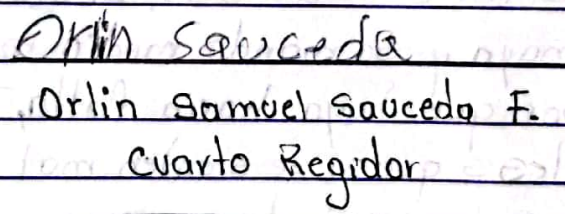 Orlin Sauceda
Orlin Samuel Sauceda F.
Cuarto Regidor